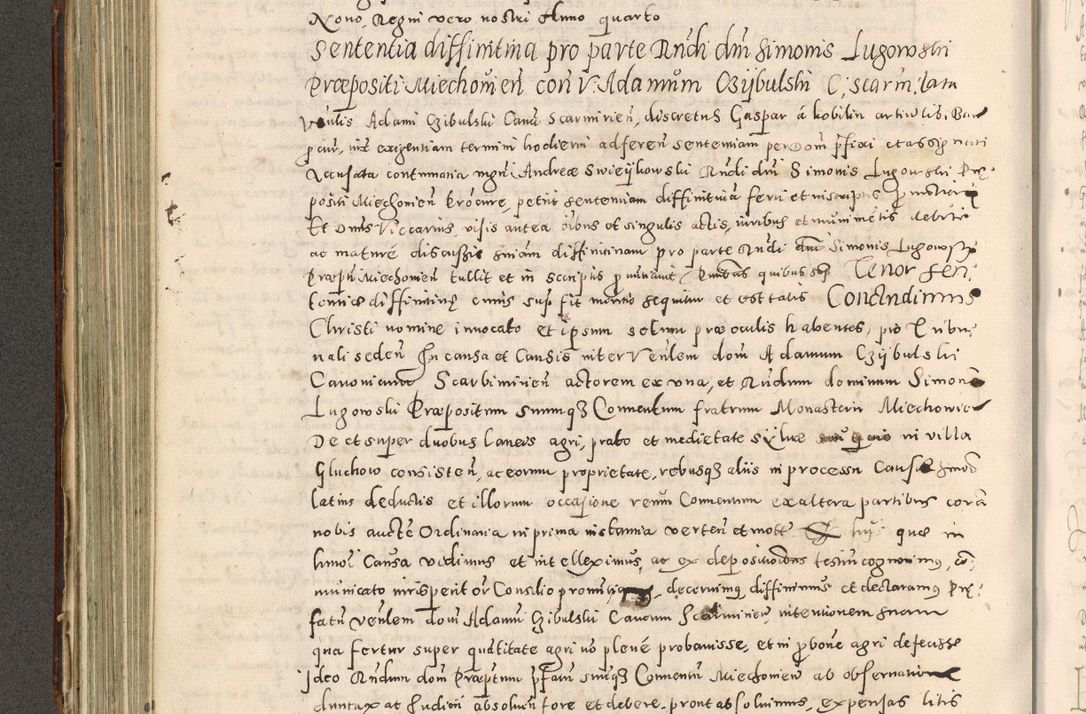 Nono, Regni vero nostri Anno quarto
Sententia diffinitiva pro parte Rndi dni Simonis Lugowski
Præpositi Miechovien con V. Adamum Czijbulski C, scarm, lata
Venlis Adami Czibulski Cano Scarmirien, discretus Gaspar á kobilin artiu lib,
pcur, iux exigentiam termini hodierni ad feren sententiam per Dom pfixi
accusata contumacia mgri Andreæ Swieijkowski Rndi dni Simonis Lugowski Præ,
positi Miechovien procure, petiit sententiam diffinitiva ferri et in scriptis
Et Dnus Viccarius, visis antea oibus et singulis actis, iuribus et munimetis
ac maturé discussis sniam diffinitivam pro parte Rndi dni Simonis Lugowski
Præpti Miechovien tullit et in scriptis quibus Tenor sen,
tentiæ diffinitivę cuius sup fit mentio sequitur et est talis Concludimus
Christi nomine invocato et ipsum solum præ oculis habentes, pro Tribu,
nali seden In causa et Causis inter Venlem dom Adamum Czijbulski
Canonicum Scarbimirien actorem ex una, et Rndum dominum Simone
Lugowski Præpositum suumqz Conventum fratrum Monasterii Miechovien
De et super duobus laneis agri, prato et medietate sylvæ in villa
Gluchow consisten, ac eorum proprietate, rebusqz aliis in processu Causæ
latius deductis et illorum occasione reum Conventum ex altera partibus cora
nobis aucte Ordinaria in prima instantia verten et mott quæ in
Causa vidimus et intelleximus, ac ex depositionibus testiu cognovimus, co,
municato iurisperitor Consilio decernimus diffinimus et declaramus Præ,
fatu Venlem dom Adamu Czibulski Canonu Scarmirien intentionem suam
qua fertur super quatitate agri no plené probavisse, et in pbone agri defecisse
Ideo Rndum dom Præptum pfatu suuqz Conventu Miechovien ab observatione
duntaxat Iudicii absolven fore et debere, prout absolvimus, expensas litis